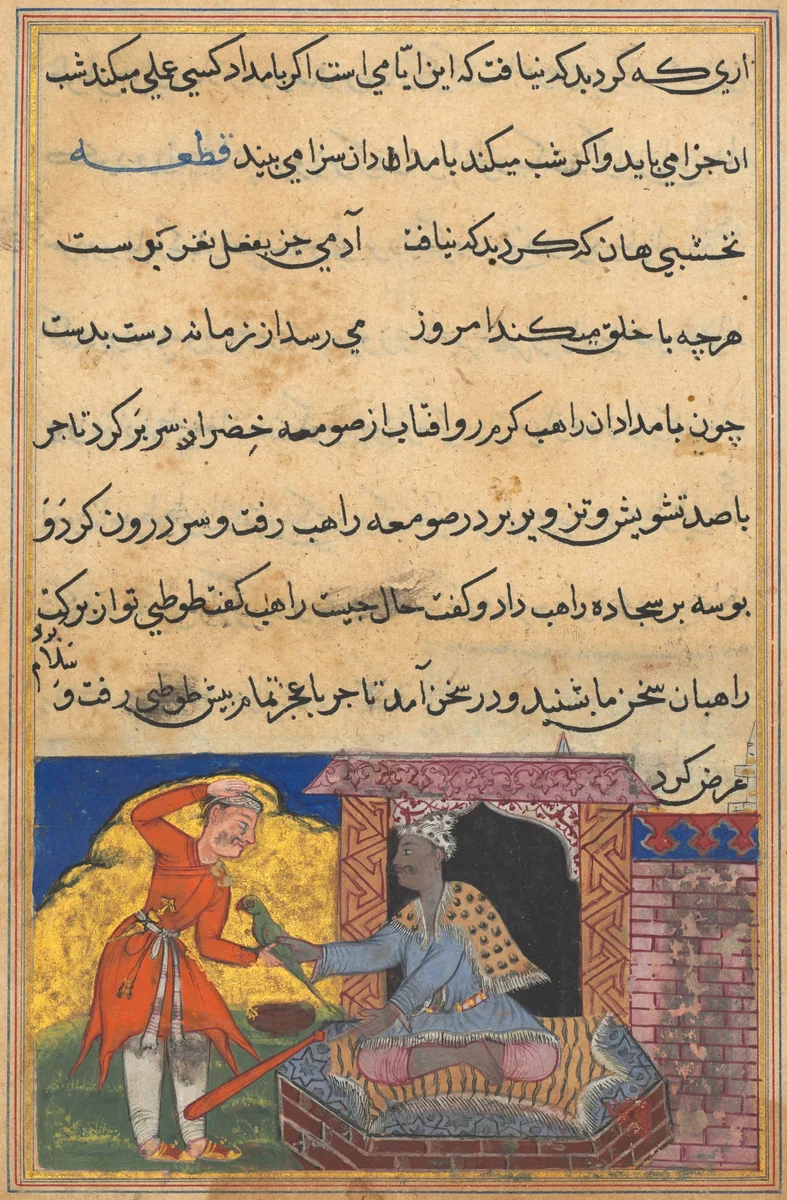 آري که کرد بد که نیافت که این ایّامي است اکر بامداد کسي عملي میکند شب
ان جزا مي یابد و اکر شب میکند بامدادان سزا مي بیند قطعه
نخشبي هان که کرد بد که نیافت آدمي جز بفعل نغر
هرچه با خلق میکند امروز مي رسد از زمانه دست بدست
چون بامدادان راهب کرم رو افتاب از صومعه خضرا سر بر کرد تاجر
با صد تشویش و تزویر بر در صومعه راهب رفت و سر درون کرد و
بوسه بر سجاده راهب داد و کفت حال جیست راهب کفت طوطي تو از برکت
راهبان سخن ما بشنید و در سخن آمد تاجر با عجز تمام بیش طوطي رفت و
سلام
عرض کرد